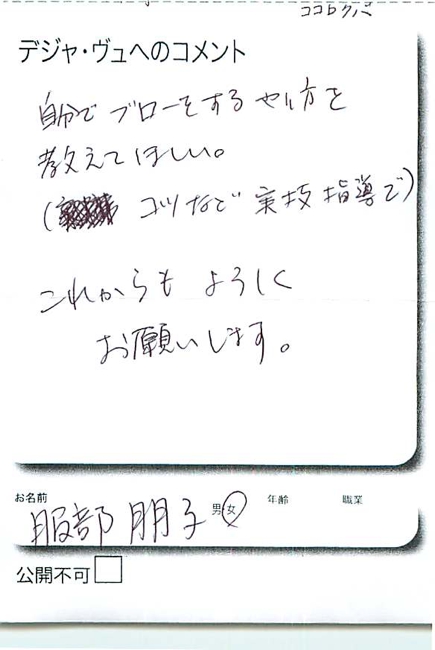 デジャ・ヴュへのコメント
自分でブローをするやり方を
教えてほしい。
( コツなど 実技指導で)
これからも よろしく
お願いします。
お名前
男 女
年齢
職業
服部 朋子
公開不可